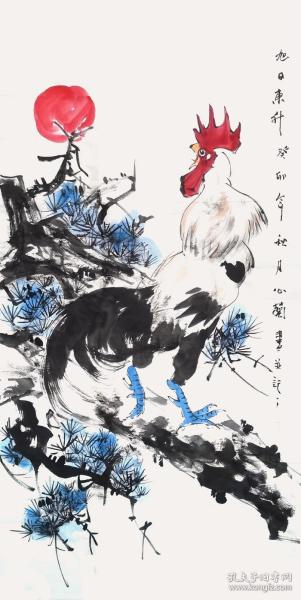 旭日東升 癸卯年秋月心蘭畫並記
孔夫子旧书网
www.kongfz.com